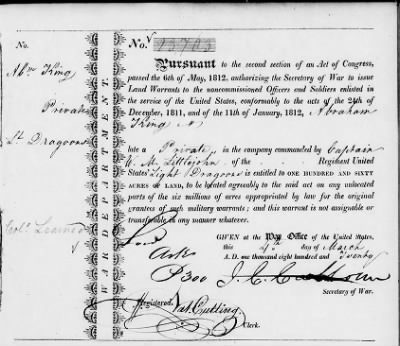 No.
Abm King
Private
Lt Dragoons
WAR DEPARTMENT.
No. 23703
Pursuant to the second section of an Act of Congress,
passed the 6th of May, 1812, authorizing the Secretary of War to issue
Land Warrants to the noncommissioned Officers and Soldiers enlisted in
the service of the United States, conformably to the acts of the 24th of
December, 1811, and of the 11th of January, 1812, Abraham
King
late a Private in the company commanded by Captain
W. M. Littlejohn of the Regiment United
States Light Dragoons is entitled to ONE HUNDRED AND SIXTY
ACRES OF LAND, to be located agreeably to the said act on any unlocated
parts of the six millions of acres appropriated by law for the original
grantees of such military warrants; and this warrant is not assignable or
transferable in any manner whatever.
GIVEN at the War Office of the United States,
this 4th day of March
A. D. one thousand eight hundred and Twenty
J. C. Calhoun
Secretary of War.
Ark
P300
Registered, Nat. Cutting
Clerk.